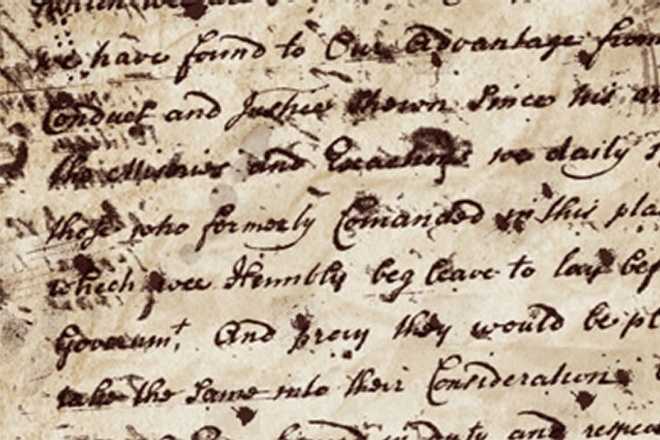 which wee
we have found to Our Advantage from
Conduct and Justice shewn Since his
the Miseries and Exactions we daily
those who formerly Comanded in this pla
which wee Humbly beg leave to lay bef
Governmt, And pray they would be pl
take the Same into their Consideration
in duty and respec